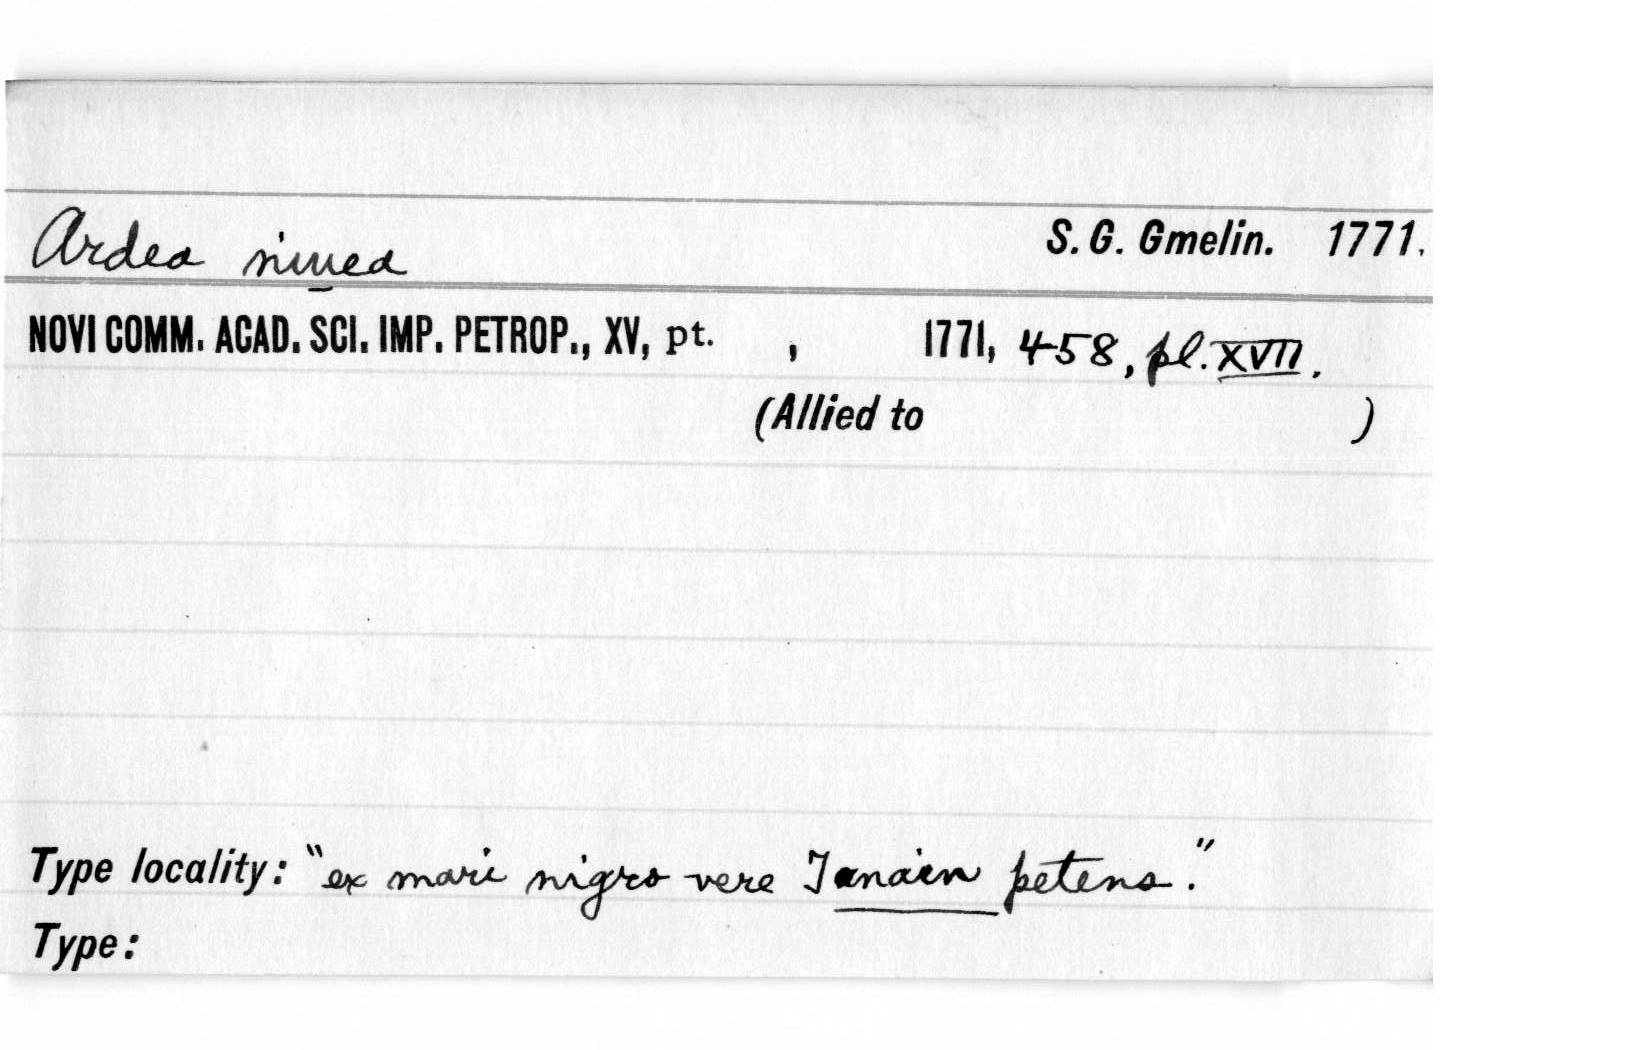 Ardea nivea S. G. Gmelin. 1771.
NOVI COMM. ACAD. SCI. IMP. PETROP., XV, pt. , 1771, 458, pl. XVII.
(Allied to )
Type locality: "ex mari nigro vere Tanain petens."
Type: